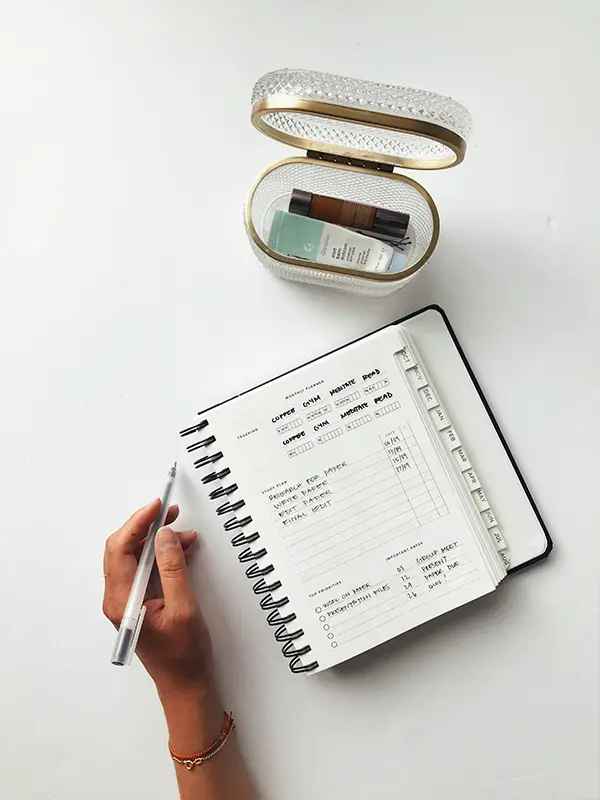 MONTHLY PLANNER
TRACKING
COFFEE GYM MEDITATE READ
COFFEE GYM MEDITATE READ
STUDY PLAN
DATE
RESEARCH FOR PAPER
WRITE PAPER
EDIT PAPER
FINAL EDIT
TOP PRIORITIES
WORK ON PAPER
PRESENTATION FILES
IMPORTANT DATES
03 GROUP MEET
12 PRESENT
24 PAPER DUE
26
OCT
NOV
DEC
JAN
FEB
MAR
APR
MAY
JUN
JUL
AUG